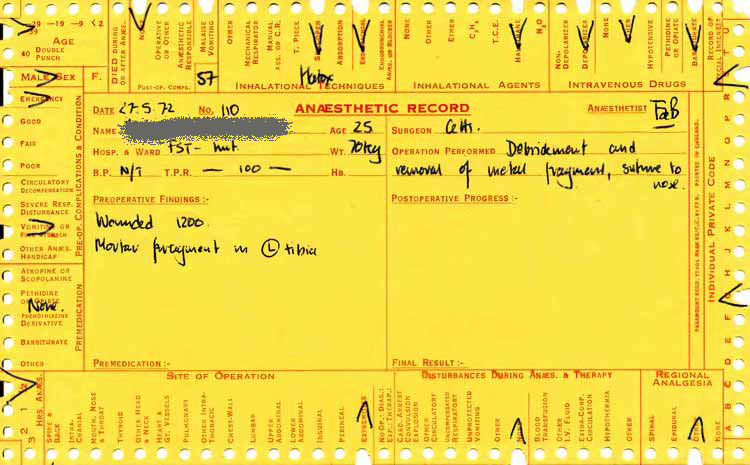 29 -19 -9 <2
39
AGE
40 DOUBLE PUNCH
MALE SEX F.
DIED DURING OR AFTER ANÆS.
NONE
OPERATIVE OR OTHER
ANÆSTHETIC RESPONSIBLE
MALAISE VOMITING
OTHER
MECHANICAL RESPIRATOR
MANUAL ASS. OR C.R.
T. PIECE
ABSORPTION
NONE
OTHER
ETHER
C₂H₄
T.C.E.
N₂O
NON. DEPOLARIZER
DEPOLARIZER
NONE
OTHER
HYPOTENSIVE
PETHIDINE OR OPIATE
BARBITURATE
RECORD OF SPECIAL INTEREST
POST-OP. COMPS.
57
Halox
INHALATIONAL TECHNIQUES
INHALATIONAL AGENTS
INTRAVENOUS DRUGS
EMERGENCY
GOOD
FAIR
POOR
CIRCULATORY DECOMPENSATION
SEVERE RESP. DISTURBANCE
VOMITING OR
OTHER ANÆS. HANDICAP
PRE-OP. COMPLICATIONS & CONDITION
ATROPINE OR SCOPOLAMINE
PETHIDINE OR OPIATE
None.
PHENOTHIAZINE DERIVATIVE
BARBITURATE
OTHER
PREMEDICATION
DATE 27.5.72 No. 110 ANÆSTHETIC RECORD ANÆSTHETIST
NAME AGE 25 SURGEON
HOSP. & WARD FST- WT. 70kg OPERATION PERFORMED Debridement and
B.P. N/T T.P.R. — 100 — HB. removal of metal fragment, suture to
nose.
PREOPERATIVE FINDINGS :- POSTOPERATIVE PROGRESS :-
Wounded 1200.
Mortar fragment in (L) tibia
PREMEDICATION :- FINAL RESULT :-
INDIVIDUAL PRIVATE CODE
PRINTED IN ENGLAND.
HRS. ANÆS.
3 2 1
SITE OF OPERATION
SPINE & BACK
INTRA-CRANIAL
MOUTH, NOSE & THROAT
THYROID
OTHER HEAD & NECK
HEART & GT. VESSELS
PULMONARY
OTHER INTRA-THORACIC
CHEST-WALL
LUMBAR
UPPER ABDOMINAL
LOWER ABDOMINAL
INGUINAL
PERINEAL
EXTREMITIES
NO OP.: DIAG.: EXP.: THERAP.:
DISTURBANCES DURING ANÆS. & THERAPY
CARD. ARREST
CONVULSION EXPLOSION
OTHER CIRCULATORY
UNCOMPENSATED RESPIRATORY
UNPROTECTED VOMITING
OTHER
BLOOD TRANSFUSION
OTHER I.V. FLUID
EXTRA-CORP. CIRCULATION
HYPOTHERMIA
OTHER
REGIONAL ANALGESIA
SPINAL
EPIDURAL
OTHER
NONE